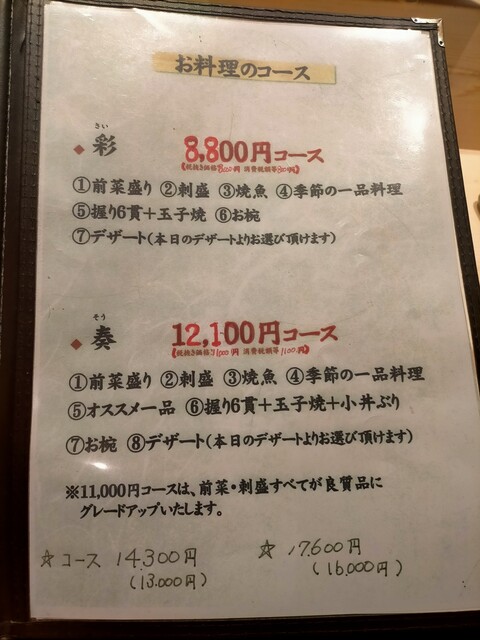 お料理のコース
さい
◆ 彩 8,800円コース
(税抜き価格8000円 消費税額等800円)
①前菜盛り ②刺盛 ③焼魚 ④季節の一品料理
⑤握り6貫+玉子焼 ⑥お椀
⑦デザート(本日のデザートよりお選び頂けます)
そう
◆ 奏 12,100円コース
(税抜き価格11000円 消費税額等1100円)
①前菜盛り ②刺盛 ③焼魚 ④季節の一品料理
⑤オススメ一品 ⑥握り6貫+玉子焼+小丼ぶり
⑦お椀 ⑧デザート(本日のデザートよりお選び頂けます)
※11,000円コースは、前菜・刺盛すべてが良質品に
グレードアップいたします。
☆コース 14,300円 ☆ 17,600円
(13,000円) (16,000円)